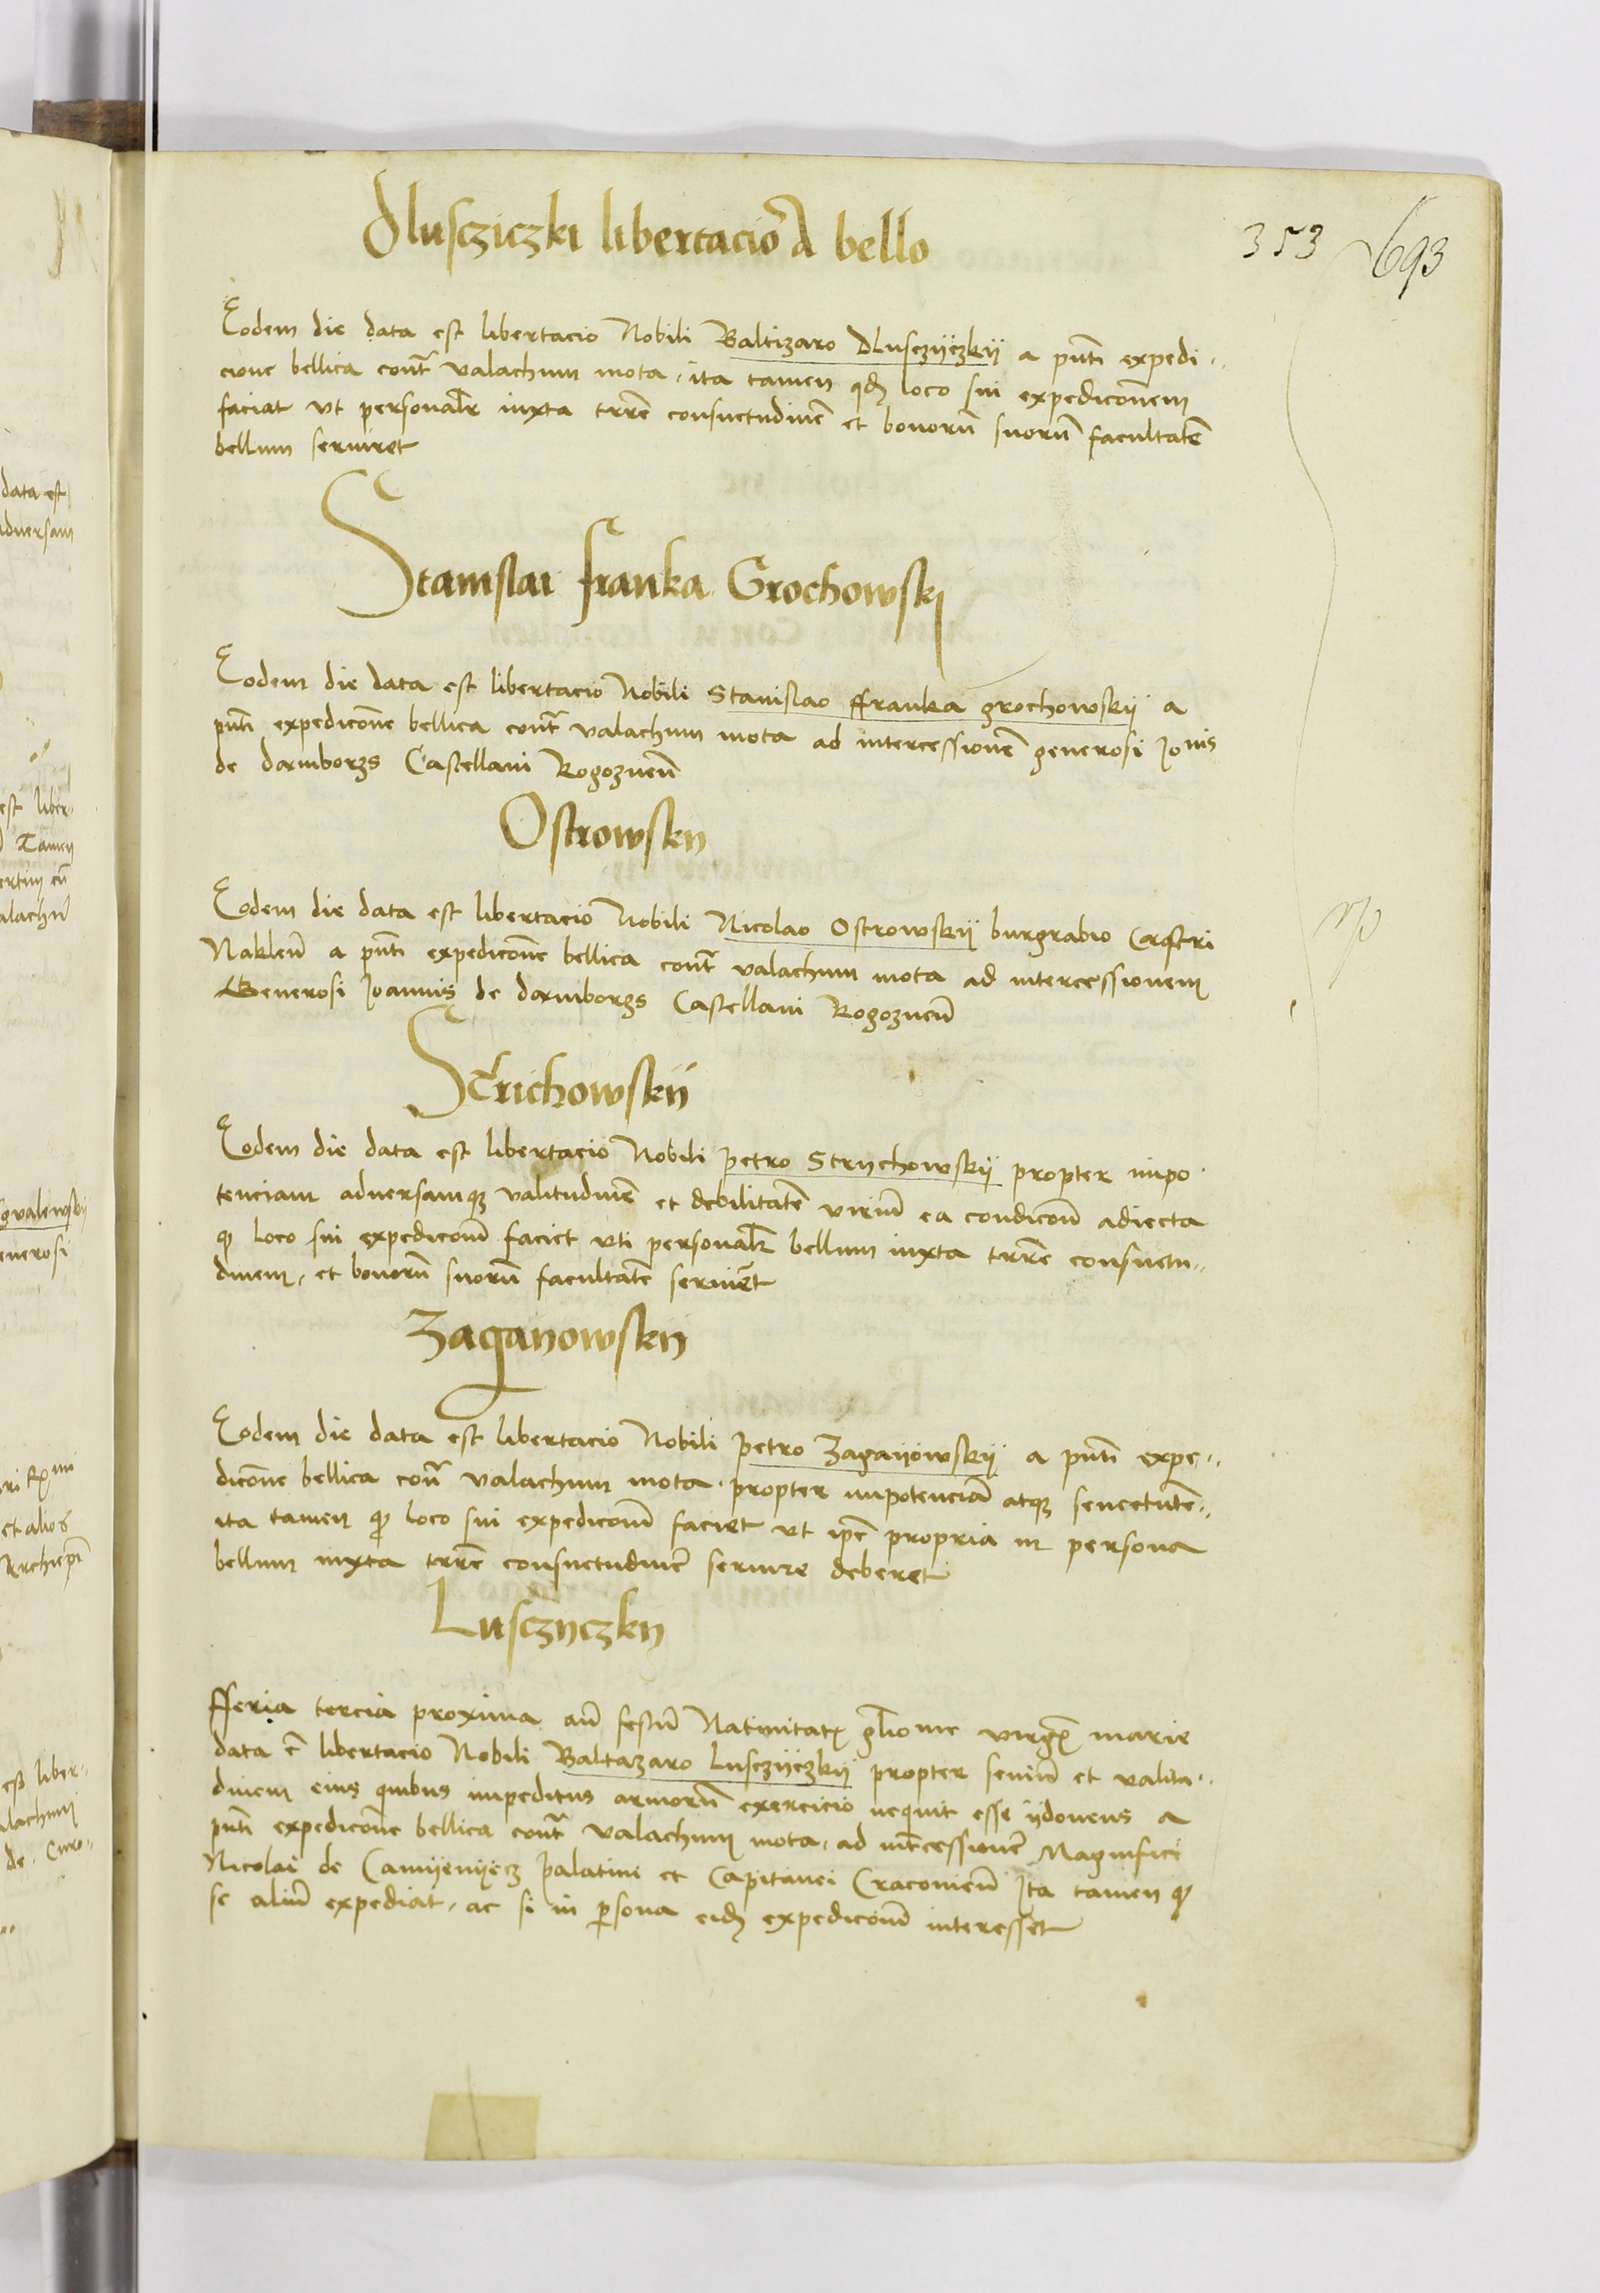 353 693
Dluscziczki libertacio a bello
Eodem die data est libertacio Nobili Baltizaro Dlusczÿczkÿ a pñti expedi..
cione bellica contra valachum mota, ita tamen qd loco sui expedicõnem
faciat ut personalr iuxta terre consuetudinẽ et bonorũ suorũ facultatẽ
bellum serviret
Stanislai franka Grochowskj
Eodem die data est libertacio Nobili Stanislao ffranka grochowskÿ a
pñti expedicõne bellica contra valachum mota ad intercessionẽ generosi Jonis
de damborgs Castellani Rogoznen̄
Ostrowsky
Eodem die data est libertacio Nobili Nicolao Ostrowskÿ burgrabio Castri
Naklen̄ a pñti expedicõne bellica contra valachum mota ad intercessionem
Generosi Joannis de damborgs Castellani Rogoznen̄
Strichowskÿ
Eodem die data est libertacio Nobili petro Strychowskÿ propter impo
tenciam adversamqz valitudinẽ et debilitatẽ viriũ ea condicõne adiecta
qp loco sui expedicõnẽ faciet uti personalr bellum iuxta terre consuetu..
dinem, et bonorũ suorũ facultatẽ serviret
Zaganowsky
Eodem die data est libertacio Nobili petro Zagaÿowskÿ a pñti expe..
dicõne bellica contra valachum mota propter impotenciã atqz senectutẽ..
ita tamen qp loco sui expedicõnẽ faciet ut ipse propria in persona
bellum iuxta terre consuetudinẽ servire deberet
Lusczyczky
fferia tercia proxima añ festũ Nativitatis gliose virgis marie
data ẽ libertacio Nobili Baltazaro Lusczÿczkÿ propter seniũ et valitu..
dinem eius quibus impeditus armorũ exercicio nequit esse ÿdoneus a
pñti expedicõne bellica contra valachum mota, ad intcessionẽ Magnifici
Nicolai de Camÿenÿecz palatini et Capitanei Cracovien̄ Ita tamen qp
se aliũ expediat, ac si in psona eidz expedicõni interesset